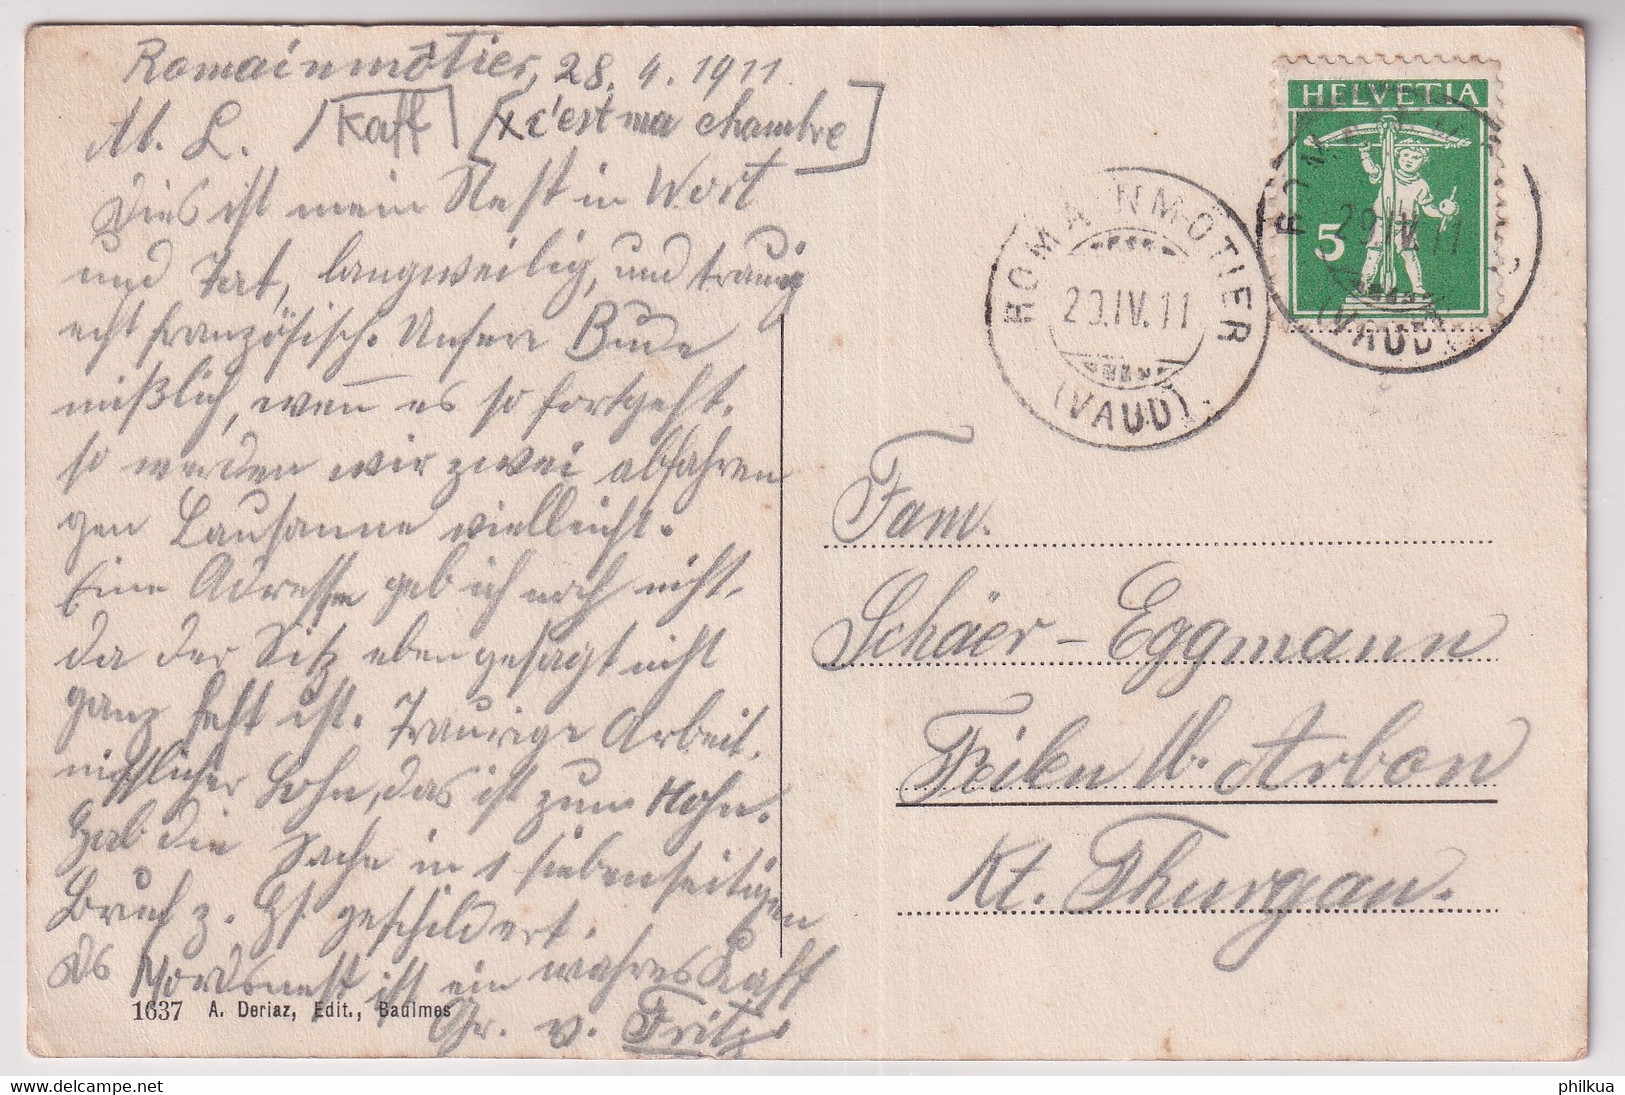 Romainmôtier, 28. 4. 1911.
M. L. [Kaff] [x c'est ma chambre]
Dies ist mein Nest in Wort
und Tat, langweilig, und traurig
echt französisch. Unsere Bude
mißlich, wenn es so fortgeht.
so werden wir zwei abfahren
gen Lausanne vielleicht.
Eine Adresse geb ich noch nicht,
da der Sitz eben gesagt nicht
ganz fest ist. Traurige Arbeit,
Lohn, das ist zum Hohn.
Hab die Sache in 1 siebenseitigen
Brief z. geschildert.
Ds Mordsnest ist ein wahres Kaff
Gr. v. Fritz
1637 A. Deriaz, Edit., Baulmes
HELVETIA
5
ROMAINMOTIER
29.IV.11
(VAUD)
ROMAINMOTIER
29.IV.11
(VAUD)
Fam.
Schäer-Eggmann
Feilen b. Arbon
Kt. Thurgau.
philkua
philkua.com